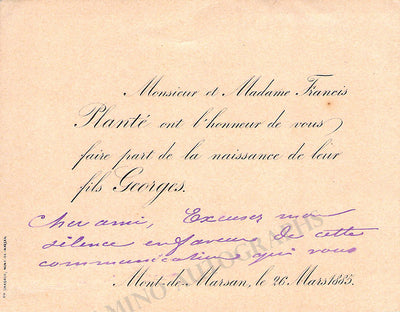 Monsieur et Madame Francis
Planté ont l'honneur de vous
faire part de la naissance de leur
fils Georges.
Cher ami, Excusez mon
silence en faveur de cette
communication qui vous
Mont-de-Marsan, le 26 Mars 1885.